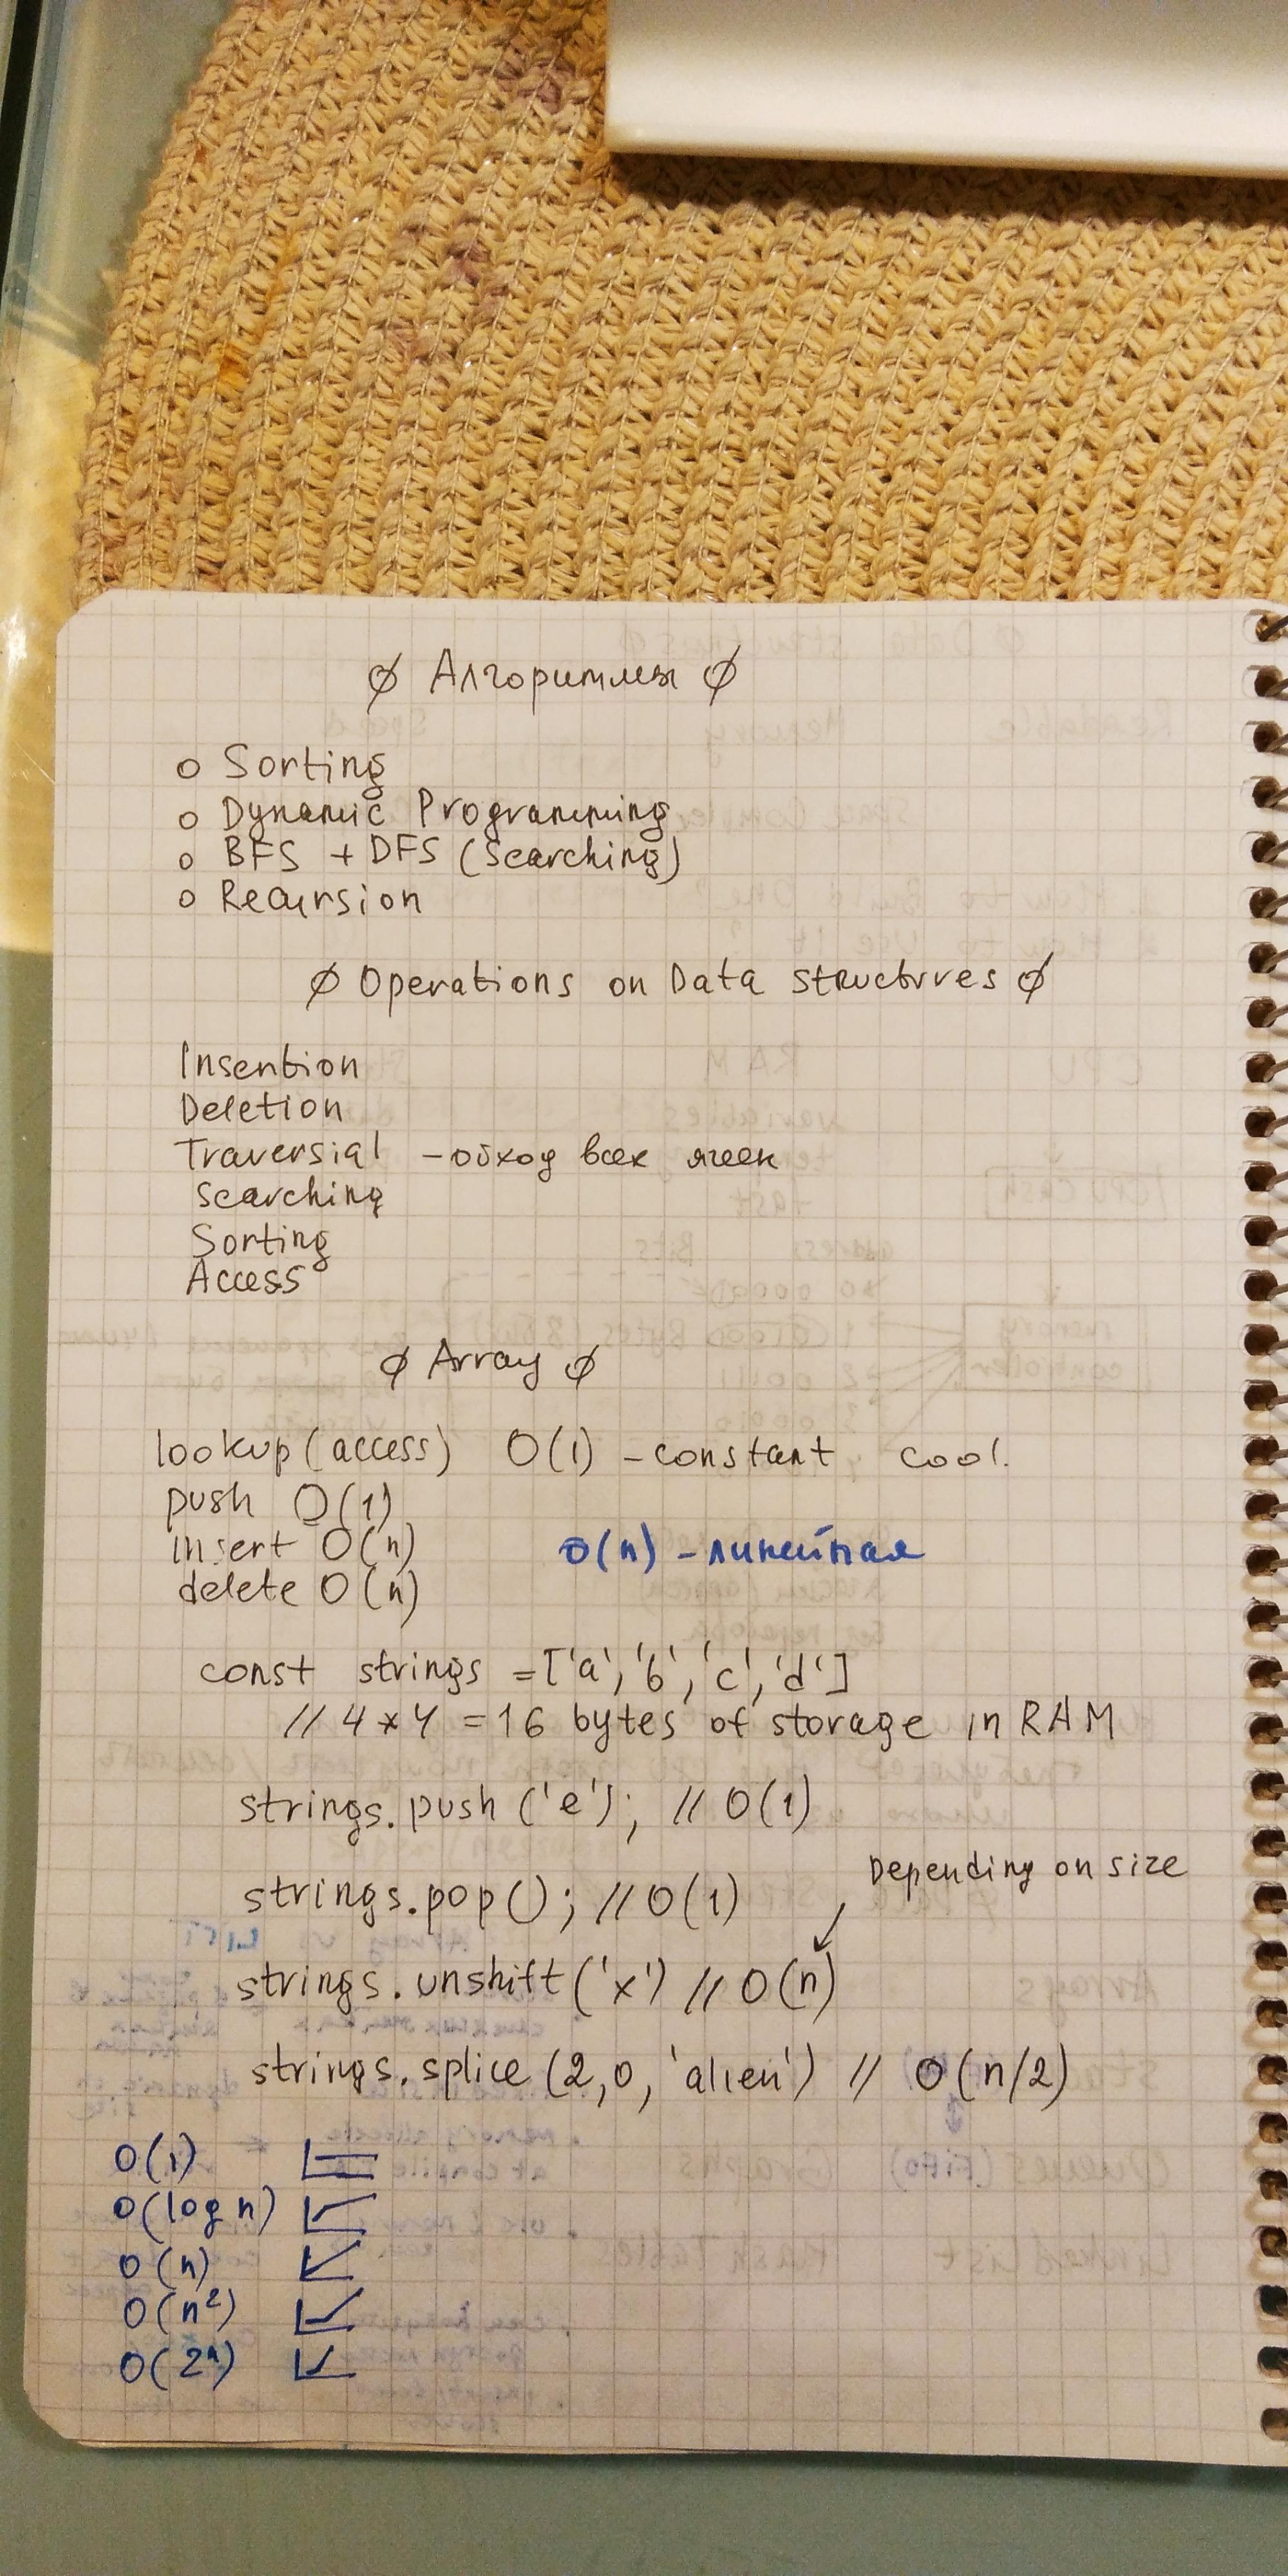 ∅ Алгоритмы ∅
o Sorting
o Dynamic Programming
o BFS + DFS (searching)
o Recursion
∅ Operations on Data structures ∅
Insertion
Deletion
Traversial - обход всех ячеек
Searching
Sorting
Access
∅ Array ∅
lookup (access) O(1) - constant, cool.
push O(1)
insert O(n) O(n) - линейная
delete O(n)
const strings = ['a', 'b', 'c', 'd']
// 4 * 4 = 16 bytes of storage in RAM
strings.push ('e'); // O(1)
Depending on size
strings.pop(); // O(1)
strings.unshift('x') // O(n)
strings.splice (2,0, 'alien') // O(n/2)
O(1)
O(log n)
O(n)
O(n²)
O(2ⁿ)